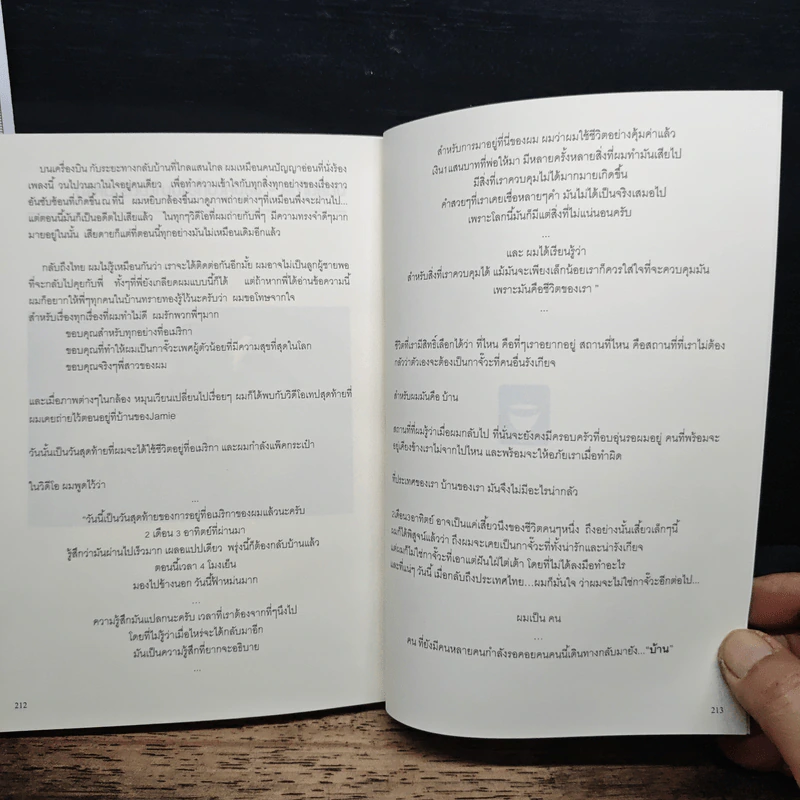 บนเครื่องบิน กับระยะทางกลับบ้านที่ไกลแสนไกล ผมเหมือนคนปัญญาอ่อนที่นั่งร้อง
เพลงนี้ วนไปวนมาในใจอยู่คนเดียว เพื่อทำความเข้าใจกับทุกสิ่งทุกอย่างของเรื่องราว
อันซับซ้อนที่เกิดขึ้น ณ ที่นี่ ผมหยิบกล้องขึ้นมาดูภาพถ่ายต่างๆที่เหมือนพึ่งจะผ่านไป...
แต่ตอนนี้มันก็เป็นอดีตไปเสียแล้ว ในทุกๆวิดีโอที่ผมถ่ายกับพี่ๆ มีความทรงจำดีๆมาก
มายอยู่ในนั้น เสียดายก็แต่ที่ตอนนี้ทุกอย่างมันไม่เหมือนเดิมอีกแล้ว
กลับถึงไทย ผมไม่รู้เหมือนกันว่า เราจะได้ติดต่อกันอีกมั้ย ผมอาจไม่เป็นลูกผู้ชายพอ
ที่จะกลับไปคุยกับพี่ ทั้งๆที่พี่ยังเกลียดผมแบบนี้ก็ได้ แต่ถ้าหากพี่ได้อ่านข้อความนี้
ผมก็อยากให้พี่ๆทุกคนในบ้านทรายทองรู้ไว้นะครับว่า ผมขอโทษจากใจ
สำหรับเรื่องทุกเรื่องที่ผมทำไม่ดี ผมรักพวกพี่ๆมาก
ขอบคุณสำหรับทุกอย่างที่อเมริกา
ขอบคุณที่ทำให้ผมเป็นกาจั๊วะเพศผู้ตัวน้อยที่มีความสุขที่สุดในโลก
ขอบคุณจริงๆพี่สาวของผม
และเมื่อภาพต่างๆในกล้อง หมุนเวียนเปลี่ยนไปเรื่อยๆ ผมก็ได้พบกับวิดีโอเทปสุดท้ายที่
ผมเคยถ่ายไว้ตอนอยู่ที่บ้านของJamie
วันนั้นเป็นวันสุดท้ายที่ผมจะได้ใช้ชีวิตอยู่ที่อเมริกา และผมกำลังแพ็คกระเป๋า
ในวิดีโอ ผมพูดไว้ว่า
...
"วันนี้เป็นวันสุดท้ายของการอยู่ที่อเมริกาของผมแล้วนะครับ
2 เดือน 3 อาทิตย์ที่ผ่านมา
รู้สึกว่ามันผ่านไปเร็วมาก เผลอแปปเดียว พรุ่งนี้ก็ต้องกลับบ้านแล้ว
ตอนนี้เวลา 4 โมงเย็น
มองไปข้างนอก วันนี้ฟ้าหม่นมาก
...
ความรู้สึกมันแปลกนะครับ เวลาที่เราต้องจากที่ๆนึงไป
โดยที่ไม่รู้ว่าเมื่อไหร่จะได้กลับมาอีก
มันเป็นความรู้สึกที่ยากจะอธิบาย
...
212
สำหรับการมาอยู่ที่นี่ของผม ผมว่าผมใช้ชีวิตอย่างคุ้มค่าแล้ว
เงิน1แสนบาทที่พ่อให้มา มีหลายครั้งหลายสิ่งที่ผมทำมันเสียไป
มีสิ่งที่เราควบคุมไม่ได้มากมายเกิดขึ้น
คำสวยๆที่เราเคยเชื่อหลายๆคำ มันไม่ได้เป็นจริงเสมอไป
เพราะโลกนี้มันก็มีแต่สิ่งที่ไม่แน่นอนครับ
...
และ ผมได้เรียนรู้ว่า
สำหรับสิ่งที่เราควบคุมได้ แม้มันจะเพียงเล็กน้อยเราก็ควรใส่ใจที่จะควบคุมมัน
เพราะมันคือชีวิตของเรา "
...
ชีวิตที่เรามีสิทธิ์เลือกได้ว่า ที่ไหน คือที่ๆเราอยากอยู่ สถานที่ไหน คือสถานที่ที่เราไม่ต้อง
กลัวว่าตัวเองจะต้องเป็นกาจั๊วะที่คนอื่นรังเกียจ
สำหรับผมมันคือ บ้าน
สถานที่ที่ผมรู้ว่าเมื่อผมกลับไป ที่นั่นจะยังคงมีครอบครัวที่อบอุ่นรอผมอยู่ คนที่พร้อมจะ
อยู่เคียงข้างเราไม่จากไปไหน และพร้อมจะให้อภัยเราเมื่อทำผิด
ที่ประเทศของเรา บ้านของเรา มันจึงไม่มีอะไรน่ากลัว
2เดือน3อาทิตย์ อาจเป็นแค่เสี้ยวนึงของชีวิตคนๆหนึ่ง ถึงอย่างนั้นเสี้ยวเล็กๆนี้
ผมก็ได้พิสูจน์แล้วว่า ถึงผมจะเคยเป็นกาจั๊วะที่ทั้งน่ารักและน่ารังเกียจ
แต่ผมก็ไม่ใช่กาจั๊วะที่เอาแต่ฝันไฝ่ไต่เต้า โดยที่ไม่ได้ลงมือทำอะไร
และที่แน่ๆ วันนี้ เมื่อกลับถึงประเทศไทย...ผมก็มั่นใจ ว่าผมจะไม่ใช่กาจั๊วะอีกต่อไป...
ผมเป็น คน
...
คน ที่ยังมีคนหลายคนกำลังรอคอยคนคนนี้เดินทางกลับมายัง..."บ้าน"
213